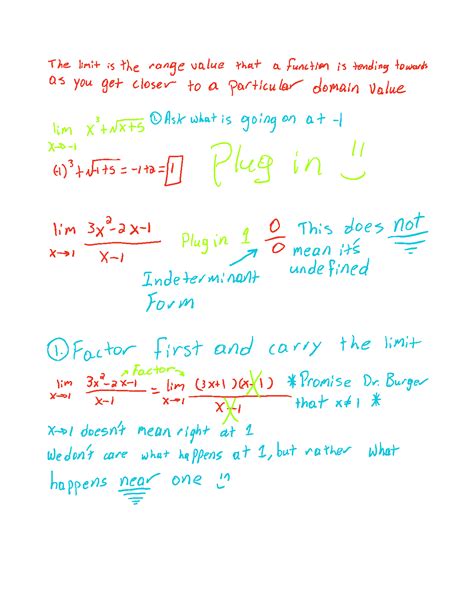 The limit is the range value that a function is tending towards
as you get closer to a particular domain value
lim x→-1 x³+√x+5 ① Ask what is going on at -1
(-1)³+√-1+5 = -1+2 = 1 Plug in
lim x→1 3x²-2x-1 / x-1 Plug in 1 0/0 This does not
mean it's
undefined
Indeterminant
Form
①. Factor first and carry the limit
Factor
lim x→1 3x²-2x-1 / x-1 = lim x→1 (3x+1)(x-1) / x-1 *Promise Dr. Burger
that x≠1 *
x→1 doesn't mean right at 1
We don't care what happens at 1, but rather what
happens near one